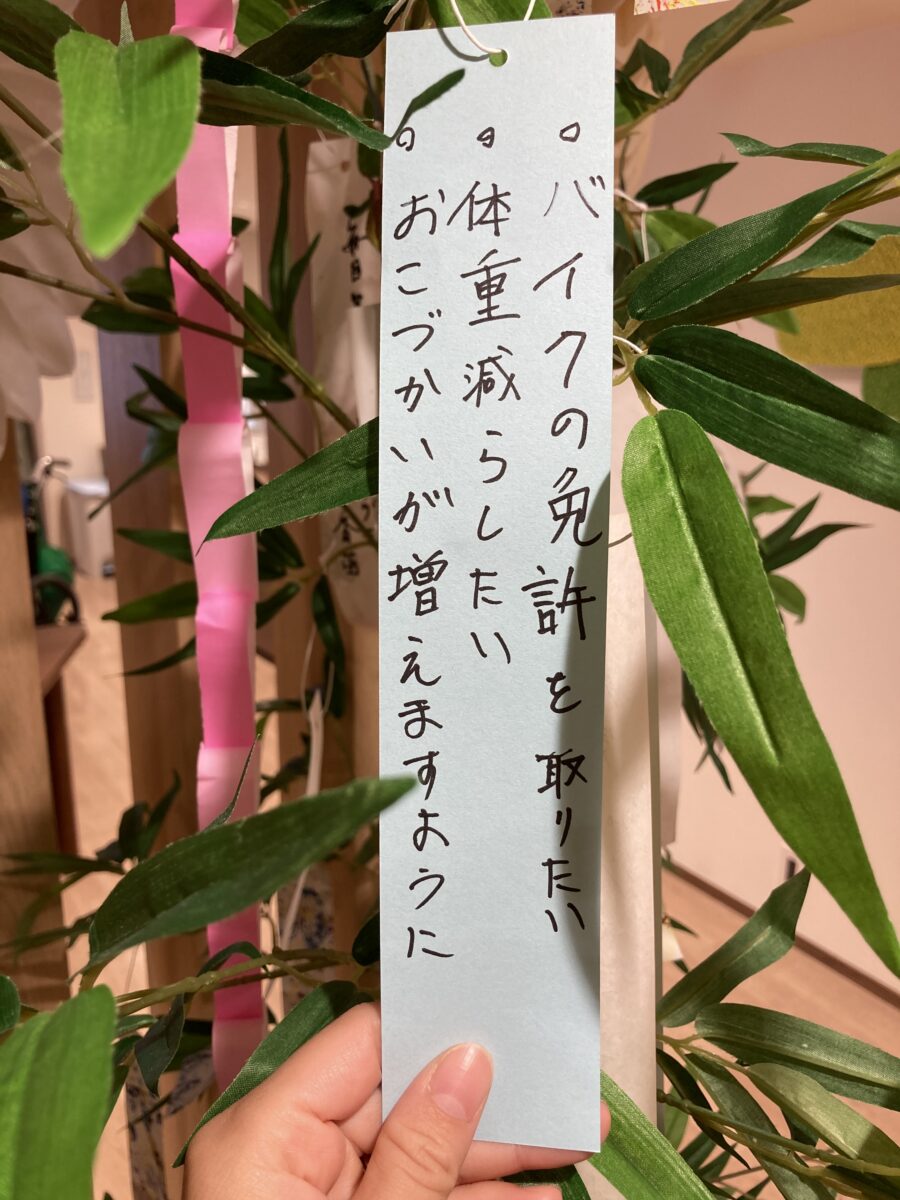 。バイクの免許を取りたい
。体重減らしたい
。おこづかいが増えますように
毎日